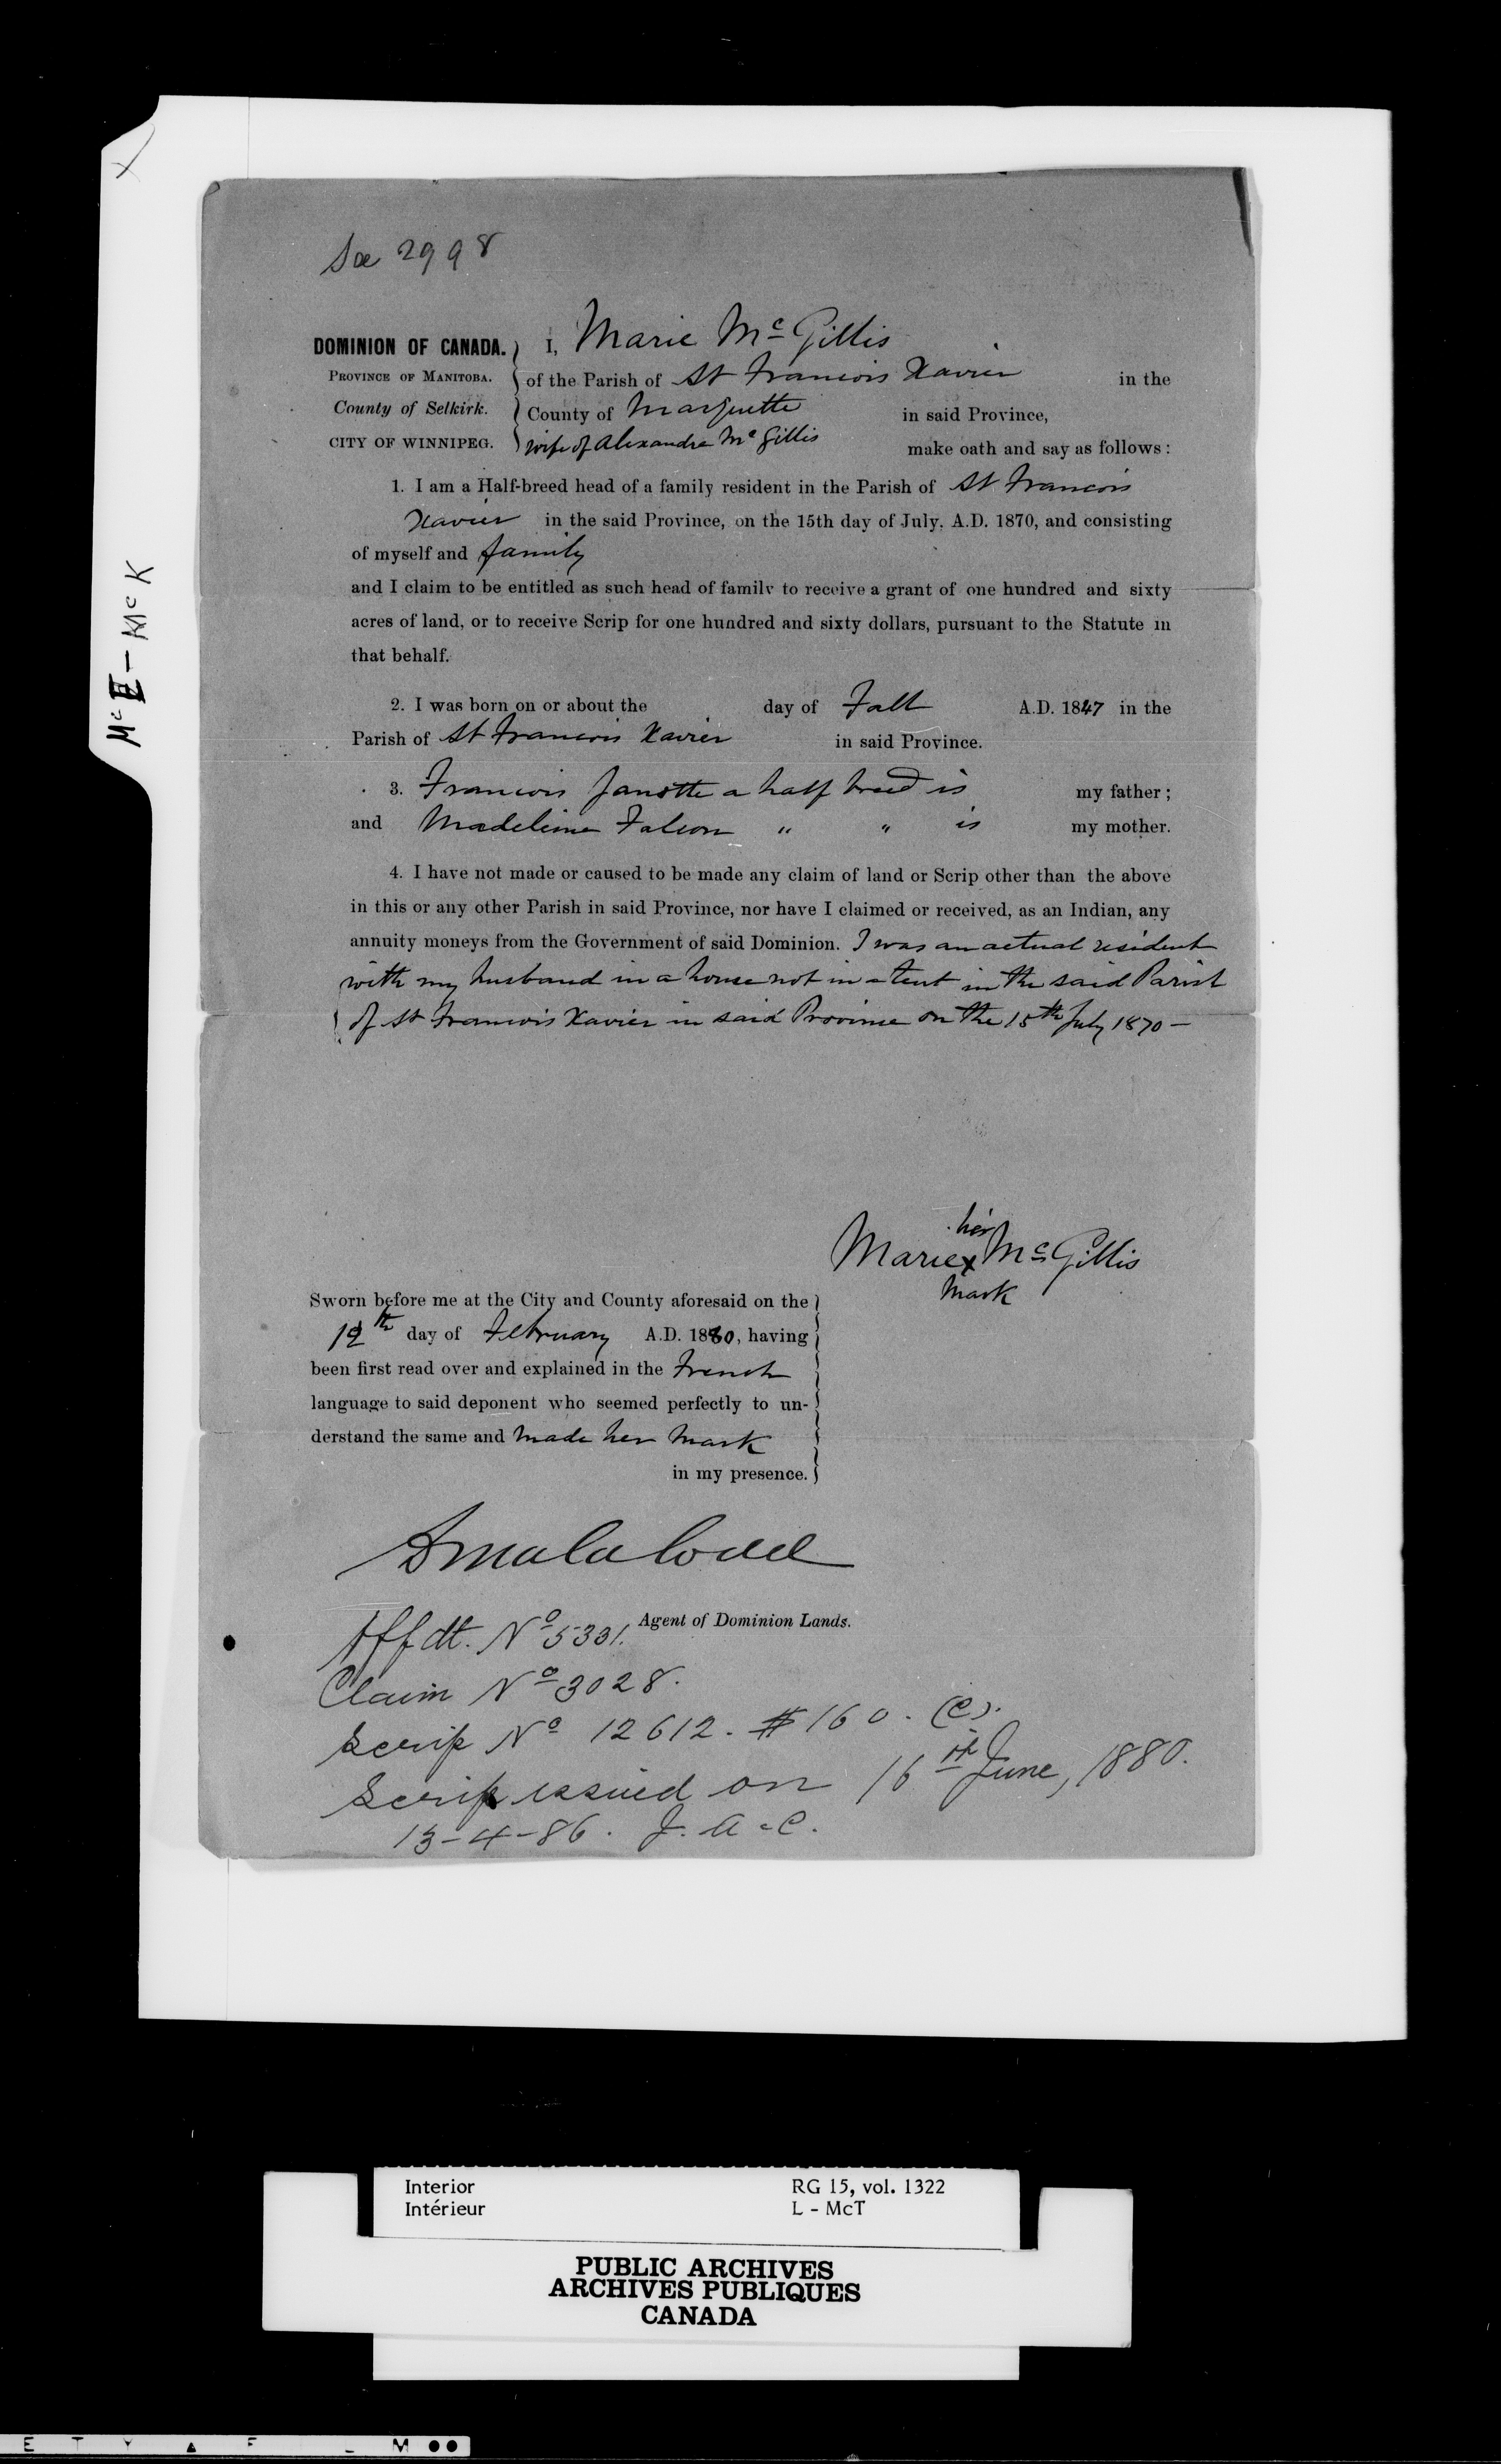 See 2998
DOMINION OF CANADA. I, Marie McGillis
PROVINCE OF MANITOBA. of the Parish of St Francois Xavier in the
County of Selkirk. County of Marquette in said Province,
CITY OF WINNIPEG. wife of Alexandre McGillis make oath and say as follows:
1. I am a Half-breed head of a family resident in the Parish of St Francois
Xavier in the said Province, on the 15th day of July, A.D. 1870, and consisting
of myself and family
and I claim to be entitled as such head of family to receive a grant of one hundred and sixty
acres of land, or to receive Scrip for one hundred and sixty dollars, pursuant to the Statute in
that behalf.
2. I was born on or about the day of Fall A.D. 1847 in the
Parish of St Francois Xavier in said Province.
3. Francois Janotte a half breed is my father;
and Madeleine Falcon " " is my mother.
4. I have not made or caused to be made any claim of land or Scrip other than the above
in this or any other Parish in said Province, nor have I claimed or received, as an Indian, any
annuity moneys from the Government of said Dominion. I was an actual resident
with my husband in a house not in a tent in the said Parish
of St Francois Xavier in said Province on the 15th July 1870 —
her
Marie x McGillis
Mark
Sworn before me at the City and County aforesaid on the
12th day of February A.D. 1880, having
been first read over and explained in the French
language to said deponent who seemed perfectly to un-
derstand the same and made her mark
in my presence.
Agent of Dominion Lands.
Affdt. No 5331.
Claim No 3028.
Scrip No 12612. $160. (C).
Scrip issued on 16th June, 1880.
13-4-86. J. A. C.
McE - McK
Interior RG 15, vol. 1322
Intérieur L - McT
PUBLIC ARCHIVES
ARCHIVES PUBLIQUES
CANADA